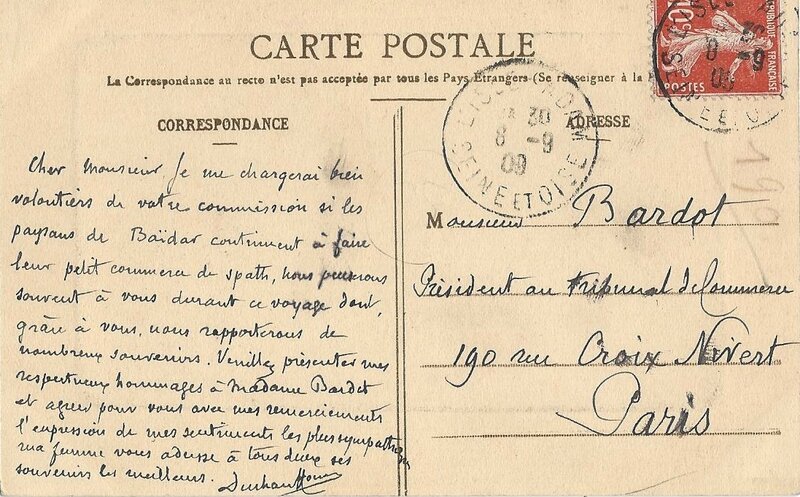 CARTE POSTALE
La Correspondance au recto n'est pas acceptée par tous les Pays Etrangers (Se renseigner à la
CORRESPONDANCE
Cher Monsieur Je me chargerai bien
volontiers de votre commission si les
paysans de Baïdar continuent à faire
leur petit commerce de spath, nous penserons
souvent à vous durant ce voyage dont,
grâce à vous, nous rapporterons de
nombreux souvenirs. Veuillez présenter mes
respectueux hommages à Madame Bardot
et agréer pour vous avec mes remerciements
l'expression de mes sentiments les plus sympathiques
ma femme vous adresse à tous deux ses
souvenirs les meilleurs.
ADRESSE
Monsieur Bardot
Président au Tribunal de Commerce
190 rue Croix Nivert
Paris
30
8 -9
09
SEINE ET OISE
10
REPUBLIQUE FRANÇAISE
POSTES
8 -9
09
190